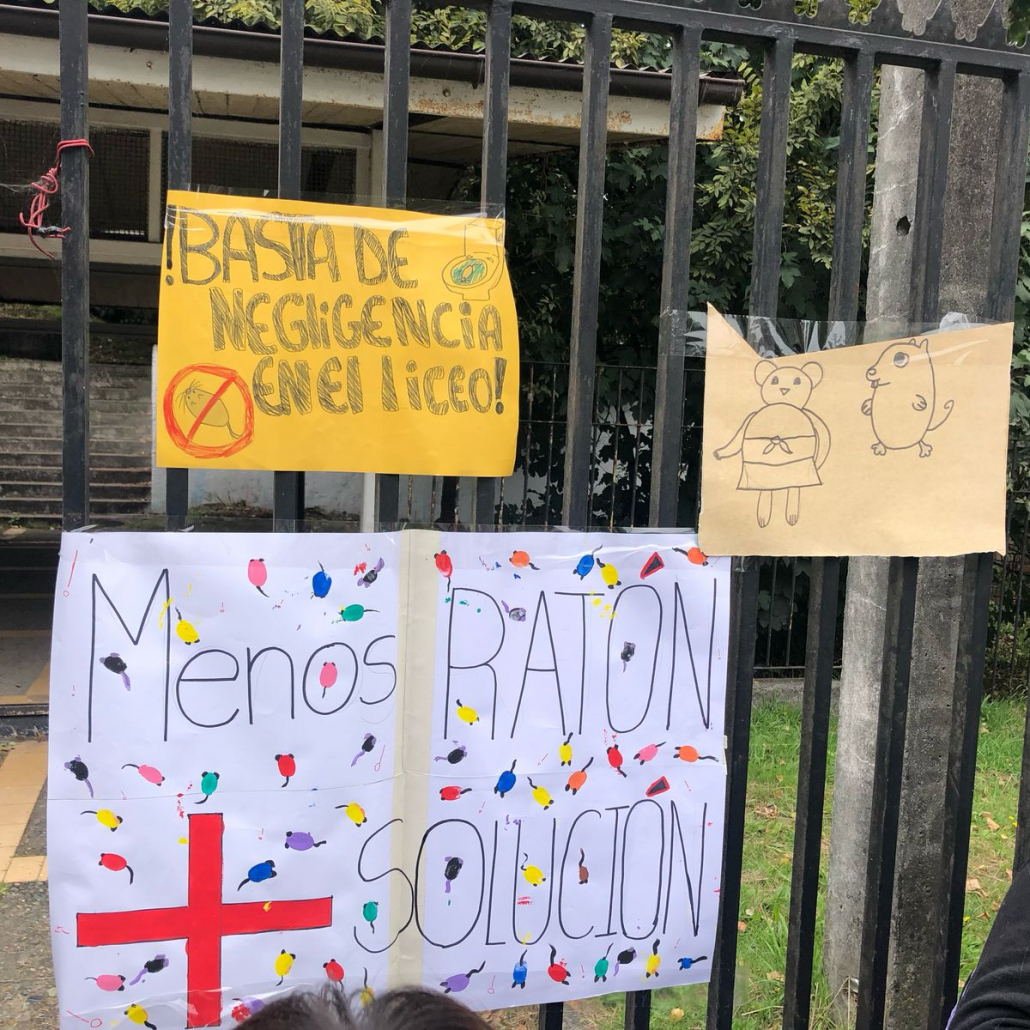 !BASTA DE
NEGLiGENCiA
EN El liCEO!
Menos RATON
+ SOLUCION